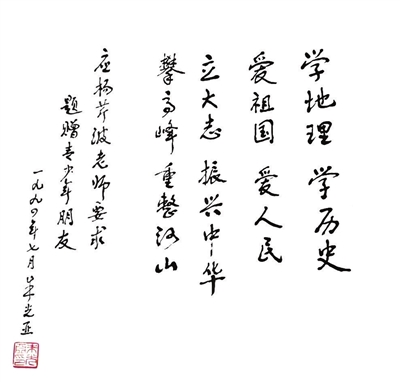 学地理 学历史
爱祖国 爱人民
立大志 振兴中华
攀高峰 重整河山
应杨芹波老师要求
题赠青少年朋友
一九九〇年七月 光亚